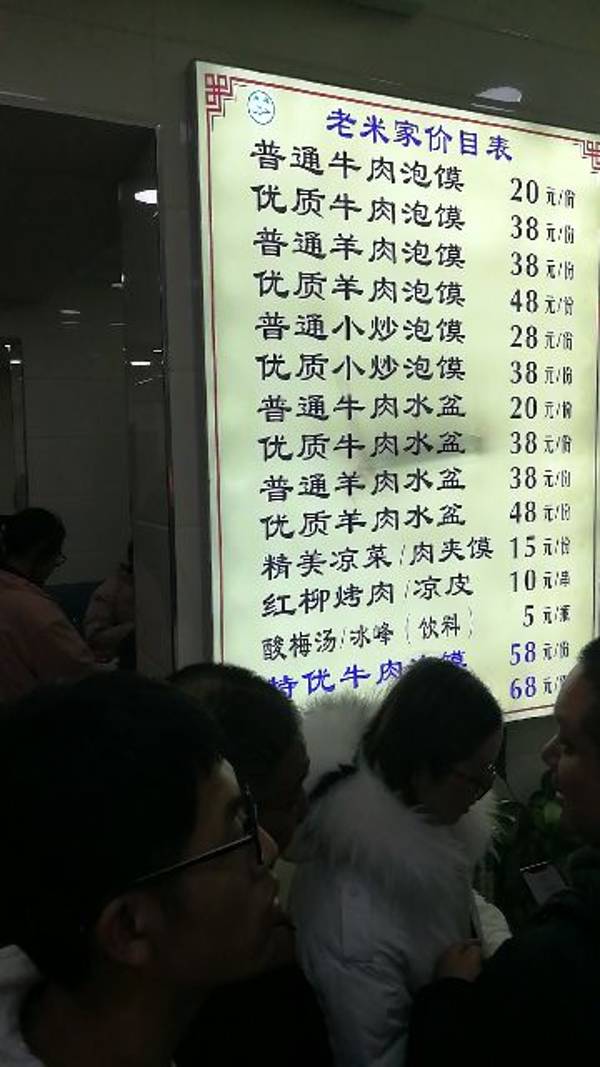 老米家价目表
普通牛肉泡馍 20元/份
优质牛肉泡馍 38元/份
普通羊肉泡馍 38元/份
优质羊肉泡馍 48元/份
普通小炒泡馍 28元/份
优质小炒泡馍 38元/份
普通牛肉水盆 20元/份
优质牛肉水盆 38元/份
普通羊肉水盆 38元/份
优质羊肉水盆 48元/份
精美凉菜/肉夹馍 15元/份
红柳烤肉/凉皮 10元/串
酸梅汤/冰峰(饮料) 5元/瓶
特优牛肉泡馍 58元/份
68元/